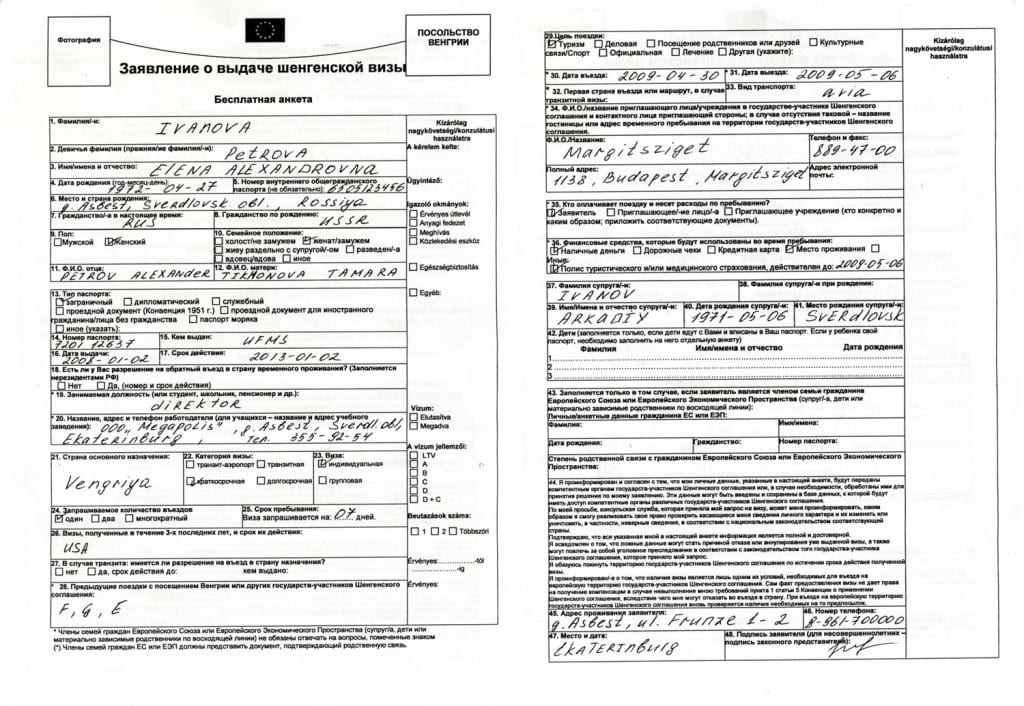 Фотография
ПОСОЛЬСТВО
ВЕНГРИИ
Заявление о выдаче шенгенской визы
Бесплатная анкета
Kizárólag
nagykövetségi/konzulátusi
használatra
A kérelem kelte:
Ügyintéző:
Igazoló okmányok:
Érvényes útlevél
Anyagi fedezet
Meghívás
Közlekedési eszköz
Egészségbiztosítás
Egyéb:
Vízum:
Elutasítva
Megadva
A vízum jellemzői:
LTV
A
B
C
D
D + C
Beutazások száma:
1 2 Többszöri
Érvényes: -tól
-ig
Érvényes:
1. Фамилия/-и:
IVANOVA
2. Девичья фамилия (прежняя/ие фамилия/-и):
PETROVA
3. Имя/имена и отчество:
ELENA ALEXANDROVNA
4. Дата рождения (год-месяц-день)
1972-04-27
5. Номер внутреннего общегражданского
паспорта (не обязательно):
6505123456
6. Место и страна рождения:
g. Asbest, Sverdlovsk. obl., Rossiya
7. Гражданство/-а в настоящее время:
RUS
8. Гражданство по рождению:
USSR
9. Пол:
Мужской Женский
10. Семейное положение:
холост/не замужем женат/замужем
живу раздельно с супругой/-ом разведен/-а
вдовец/вдова иное
11. Ф.И.О. отца:
PETROV ALEXANder
12. Ф.И.О. матери:
TIKHONOVA TAMARA
13. Тип паспорта:
заграничный дипломатический служебный
проездной документ (Конвенция 1951 г.) проездной документ для иностранного
гражданина/лица без гражданства паспорт моряка
иное (указать):
14. Номер паспорта:
7201 12637
15. Кем выдан:
UFMS
16. Дата выдачи:
2008-01-02
17. Срок действия:
2013-01-02
18. Есть ли у Вас разрешение на обратный въезд в страну временного проживания? (Заполняется
нерезидентами РФ)
Нет Да, (номер и срок действия)
* 19. Занимаемая должность (или студент, школьник, пенсионер и др.):
direktor
* 20. Название, адрес и телефон работодателя (для учащихся – название и адрес учебного
заведения):
ООО „Megapolis", g. Asbest, Sverdl. obl,
Ekaterinburg, Тел. 355-92-54
21. Страна основного назначения:
Vengriya
22. Категория визы:
транзит-аэропорт транзитная
краткосрочная долгосрочная
23. Виза:
индивидуальная
групповая
24. Запрашиваемое количество въездов
один два многократный
25. Срок пребывания:
Виза запрашивается на: 07 дней.
26. Визы, полученные в течение 3-х последних лет, и срок их действия:
USA
27. В случае транзита: имеется ли разрешение на въезд в страну назначения?
нет да, срок действия до: кем выдано:
* 28. Предыдущие поездки с посещением Венгрии или других государств-участников Шенгенского
соглашения:
F, g, E
* Члены семей граждан Европейского Союза или Европейского Экономического Пространства (супруг/а, дети или
материально зависимые родственники по восходящей линии) не обязаны отвечать на вопросы, помеченные знаком
(*).Члены семей граждан ЕС или ЕЭП должны представить документ, подтверждающий родственную связь.
29.Цель поездки:
Туризм Деловая Посещение родственников или друзей Культурные
связи/Спорт Официальная Лечение Другая (укажите):
Kizárólag
nagykövetségi/konzulátusi
használatra
* 30. Дата въезда: 2009-04-30
* 31. Дата выезда: 2009-05-06
* 32. Первая страна въезда или маршрут, в случае
транзитной визы:
33. Вид транспорта:
avia
* 34. Ф.И.О/название приглашающего лица/учреждения в государстве-участнике Шенгенского
соглашения и контактного лица приглашающей стороны; в случае отсутствия таковой – название
гостиницы или адрес временного пребывания на территории государств-участников Шенгенского
соглашения.
Ф.И.О/Название:
Margitsziget
Телефон и факс:
889-47-00
Полный адрес:
1138, Budapest, Margitsziget
Адрес электронной
почты:
* 35. Кто оплачивает поездку и несет расходы по пребыванию?
Заявитель Приглашающее/-ие лицо/-а Приглашающее учреждение (кто конкретно и
каким образом; приложить соответствующие документы).
* 36. Финансовые средства, которые будут использованы во время пребывания:
Наличные деньги Дорожные чеки Кредитная карта Место проживания
Иные:
Полис туристического и/или медицинского страхования, действителен до: 2009-05-06
37. Фамилия супруга/-и:
IVANOV
38. Фамилия супруга/-и при рождении:
39. Имя/Имена и отчество супруга/-и:
ARKADIY
40. Дата рождения супруга/-и:
1971-05-06
41. Место рождения супруга/-и:
SVERdLOVSK
42. Дети (заполняется только, если дети едут с Вами и вписаны в Ваш паспорт. Если у ребенка свой
паспорт, необходимо заполнить на него отдельную анкету)
Фамилия Имя/имена и отчество Дата рождения
1
2
3
43. Заполняется только в том случае, если заявитель является членом семьи гражданина
Европейского Союза или Европейского Экономического Пространства (супруг/а, дети или
материально зависимые родственники по восходящей линии):
Личные/анкетные данные гражданина ЕС или ЕЭП:
Фамилия: Имя/имена:
Дата рождения: Гражданство: Номер паспорта:
Степень родственной связи с гражданином Европейского Союза или Европейского Экономического
Пространства:
44. Я проинформирован и согласен с тем, что мои личные данные, указанные в настоящей анкете, будут переданы
компетентным органам государств-участников Шенгенского соглашения или, в случае необходимости, обработаны ими для
принятия решения по моему заявлению. Эти данные могут быть введены и сохранены в базе данных, к которой будут
иметь доступ компетентные органы различных государств-участников Шенгенского соглашения.
По моей просьбе, консульская служба, которая приняла мой запрос на визу, может меня проинформировать, каким
образом я смогу реализовать свое право проверить касающиеся меня сведения личного характера и их изменить или
уничтожить, в частности, неверные сведения, в соответствии с национальным законодательством соответствующей
страны.
Подтверждаю, что вся указанная мной в настоящей анкете информация является полной и достоверной.
Я осведомлен о том, что ложные данные могут стать причиной отказа или аннулирования уже выданной визы, а также
могут повлечь за собой уголовное преследование в соответствии с законодательством того государства-участника
Шенгенского соглашения, которое приняло мой запрос.
Я обязуюсь покинуть территорию государств-участников Шенгенского соглашения по истечении срока действия полученной
визы.
Я проинформирован/-а о том, что наличие визы является лишь одним из условий, необходимых для въезда на
европейскую территорию государств-участников Шенгенского соглашения. Сам факт предоставления визы не дает права
на получение компенсации в случае невыполнения мною требований пункта 1 статьи 5 Конвенции о применении
Шенгенского соглашения, вследствие чего мне могут отказать во въезде в страну. При въезде на европейскую территорию
государств-участников Шенгенского соглашения вновь проверяется наличие необходимых на то предпосылок.
45. Адрес проживания заявителя:
g. Asbest, ul. Frunze 1-2
46. Номер телефона:
8-961-700000
47. Место и дата:
EKATERINburg
48. Подпись заявителя (для несовершеннолетних –
подпись законного представителя):